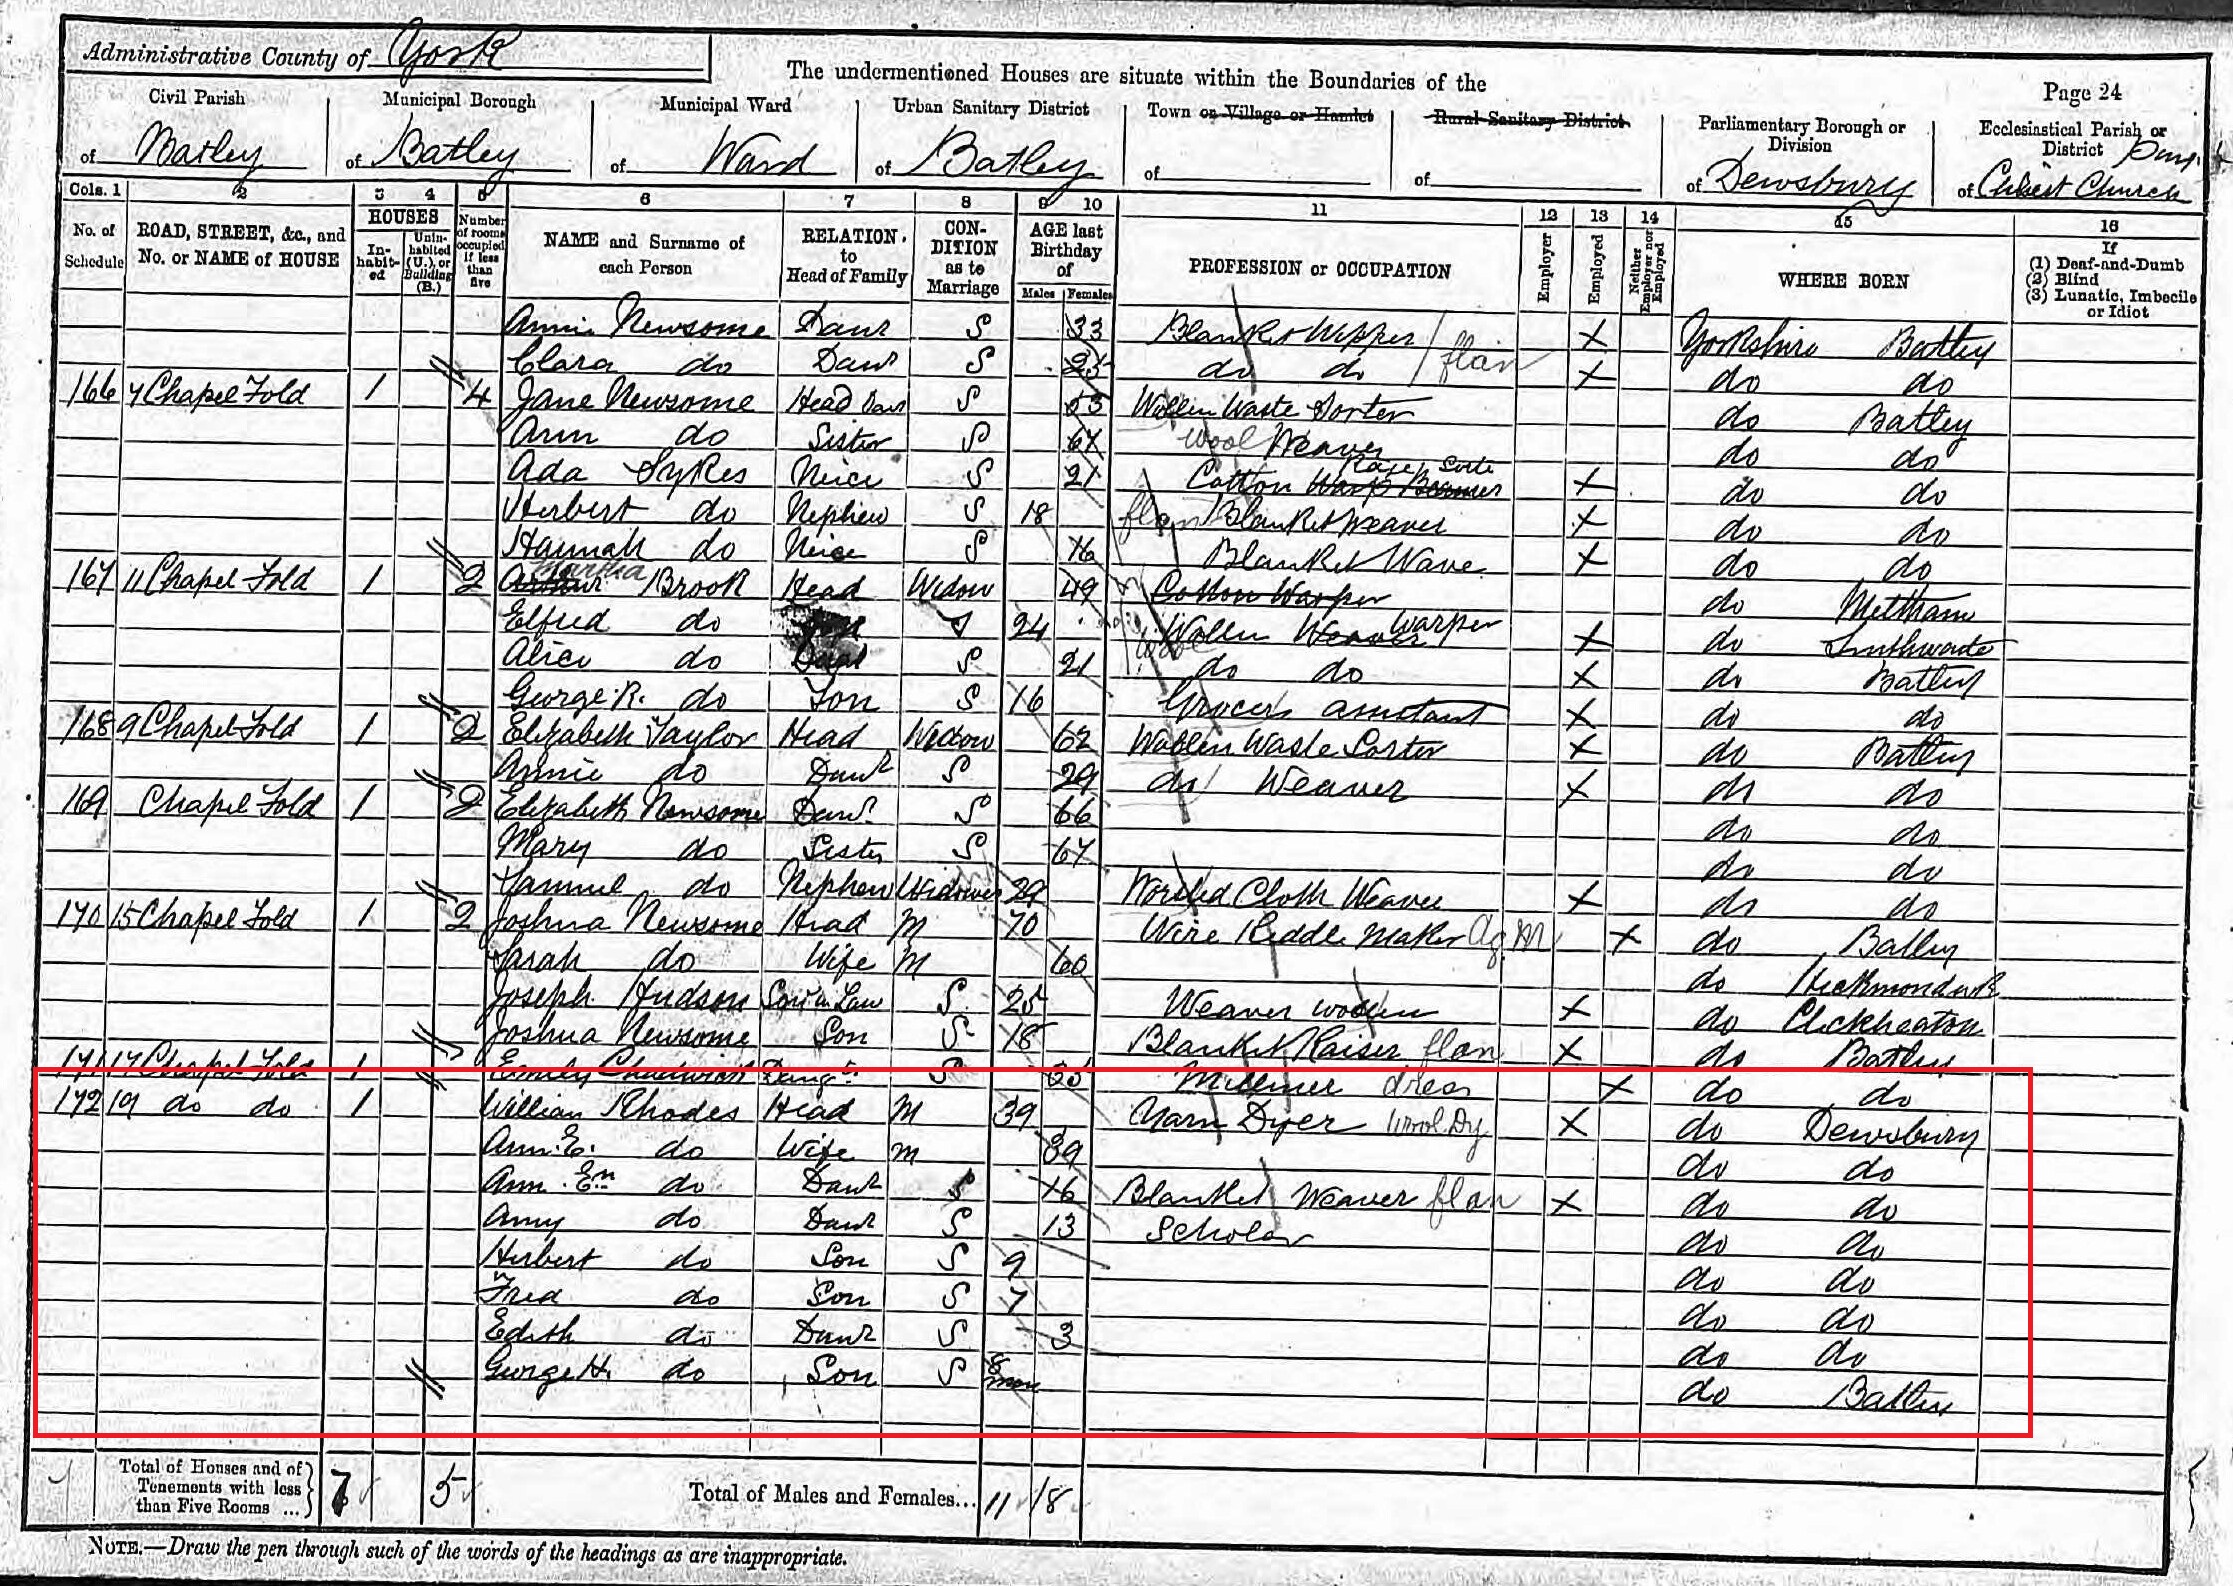 Administrative County of York
The undermentioned Houses are situate within the Boundaries of the
Page 24
Civil Parish of Batley
Municipal Borough of Batley
Municipal Ward of Ward
Urban Sanitary District of Batley
Town or Village or Hamlet of
Rural Sanitary District of
Parliamentary Borough or Division of Dewsbury
Ecclesiastical Parish or District of Christ Church
Cols. 1 2 3 4 5 6 7 8 9 10 11 12 13 14 15 16
No. of Schedule
ROAD, STREET, &c., and No. or NAME of HOUSE
HOUSES
In-habit-ed
Unin-habited (U.), or Building (B.)
Number of rooms occupied if less than five
NAME and Surname of each Person
RELATION to Head of Family
CON-DITION as to Marriage
AGE last Birthday of
Males Females
PROFESSION or OCCUPATION
Employer
Employed
Neither Employer nor Employed
WHERE BORN
If
(1) Deaf-and-Dumb
(2) Blind
(3) Lunatic, Imbecile or Idiot
Annie Newsome Daur S 33 Blanket Wipper flan X Yorkshire Batley
Clara do Daur S 25 do do X do do
166 7 Chapel Fold 1 4 Jane Newsome Head S 53 Wollen Waste Sorter do Batley
Ann do Sister S 67 wool Weaver do do
Ada Sykes Neice S 21 Cotton X do do
Herbert do Nephew S 18 flan Blanket Weaver X do do
Hannah do Neice S 16 Blanket Wave X do do
167 11 Chapel Fold 1 2 Martha Brook Head Widow 49 Cotton Warper do Meltham
Elfred do S 24 Wollen Weaver Warper X do
Alice do S 21 do do X do Batley
George R. do Son S 16 Grocers assistant X do do
168 9 Chapel Fold 1 2 Elizabeth Taylor Head Widow 62 Wollen Waste Sorter X do Batley
Annie do Daur S 29 do Weaver X do do
169 Chapel Fold 1 2 Elizabeth Newsome Daur S 66 do do
Mary do Sister S 67 do do
Samuel do Nephew Widower 29 Worsted Cloth Weaver X do do
170 15 Chapel Fold 1 2 Joshua Newsome Head M 70 Wire Riddle Maker X do Batley
Sarah do Wife M 60 do Heckmondwk
Joseph Hudson Son in Law S 25 Weaver woolen X do Cleckheaton
Joshua Newsome Son S 18 Blanket Raiser flan X do Batley
171 17 Chapel Fold 1 Emily Chadwick Daugr S 35 Milliner dress X do do
172 19 do do 1 William Rhodes Head M 39 Yarn Dyer Wool Dy X do Dewsbury
Ann. E. do Wife M 39 do do
Ann. En do Daur S 16 Blanket Weaver flan X do do
Amy do Daur S 13 Scholar do do
Herbert do Son S 9 do do
Fred do Son S 7 do do
Edith do Daur S 3 do do
George H. do Son S 8 mon do Batley
Total of Houses and of Tenements with less than Five Rooms ... 7 5
Total of Males and Females... 11 18
NOTE.—Draw the pen through such of the words of the headings as are inappropriate.